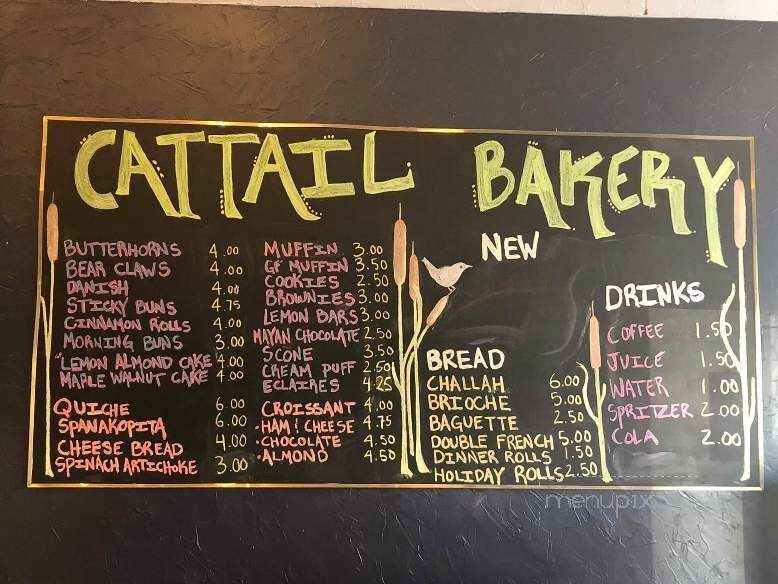 CATTAIL BAKERY
BUTTERHORNS 4.00
BEAR CLAWS 4.00
DANISH 4.00
STICKY BUNS 4.75
CINNAMON ROLLS 4.00
MORNING BUNS 3.00
LEMON ALMOND CAKE 4.00
MAPLE WALNUT CAKE 4.00
QUICHE 6.00
SPANAKOPITA 6.00
CHEESE BREAD 4.00
SPINACH ARTICHOKE 3.00
MUFFIN 3.00
GF MUFFIN 3.50
COOKIES 2.50
BROWNIES 3.00
LEMON BARS 3.00
MAYAN CHOCOLATE 2.50
SCONE 3.50
CREAM PUFF 2.50
ECLAIRES 4.25
CROISSANT 4.00
•HAM & CHEESE 4.75
•CHOCOLATE 4.50
•ALMOND 4.50
NEW
BREAD
CHALLAH 6.00
BRIOCHE 5.00
BAGUETTE 2.50
DOUBLE FRENCH 5.00
DINNER ROLLS 1.50
HOLIDAY ROLLS 2.50
DRINKS
COFFEE 1.50
JUICE 1.50
WATER 1.00
SPRITZER 2.00
COLA 2.00
menupix